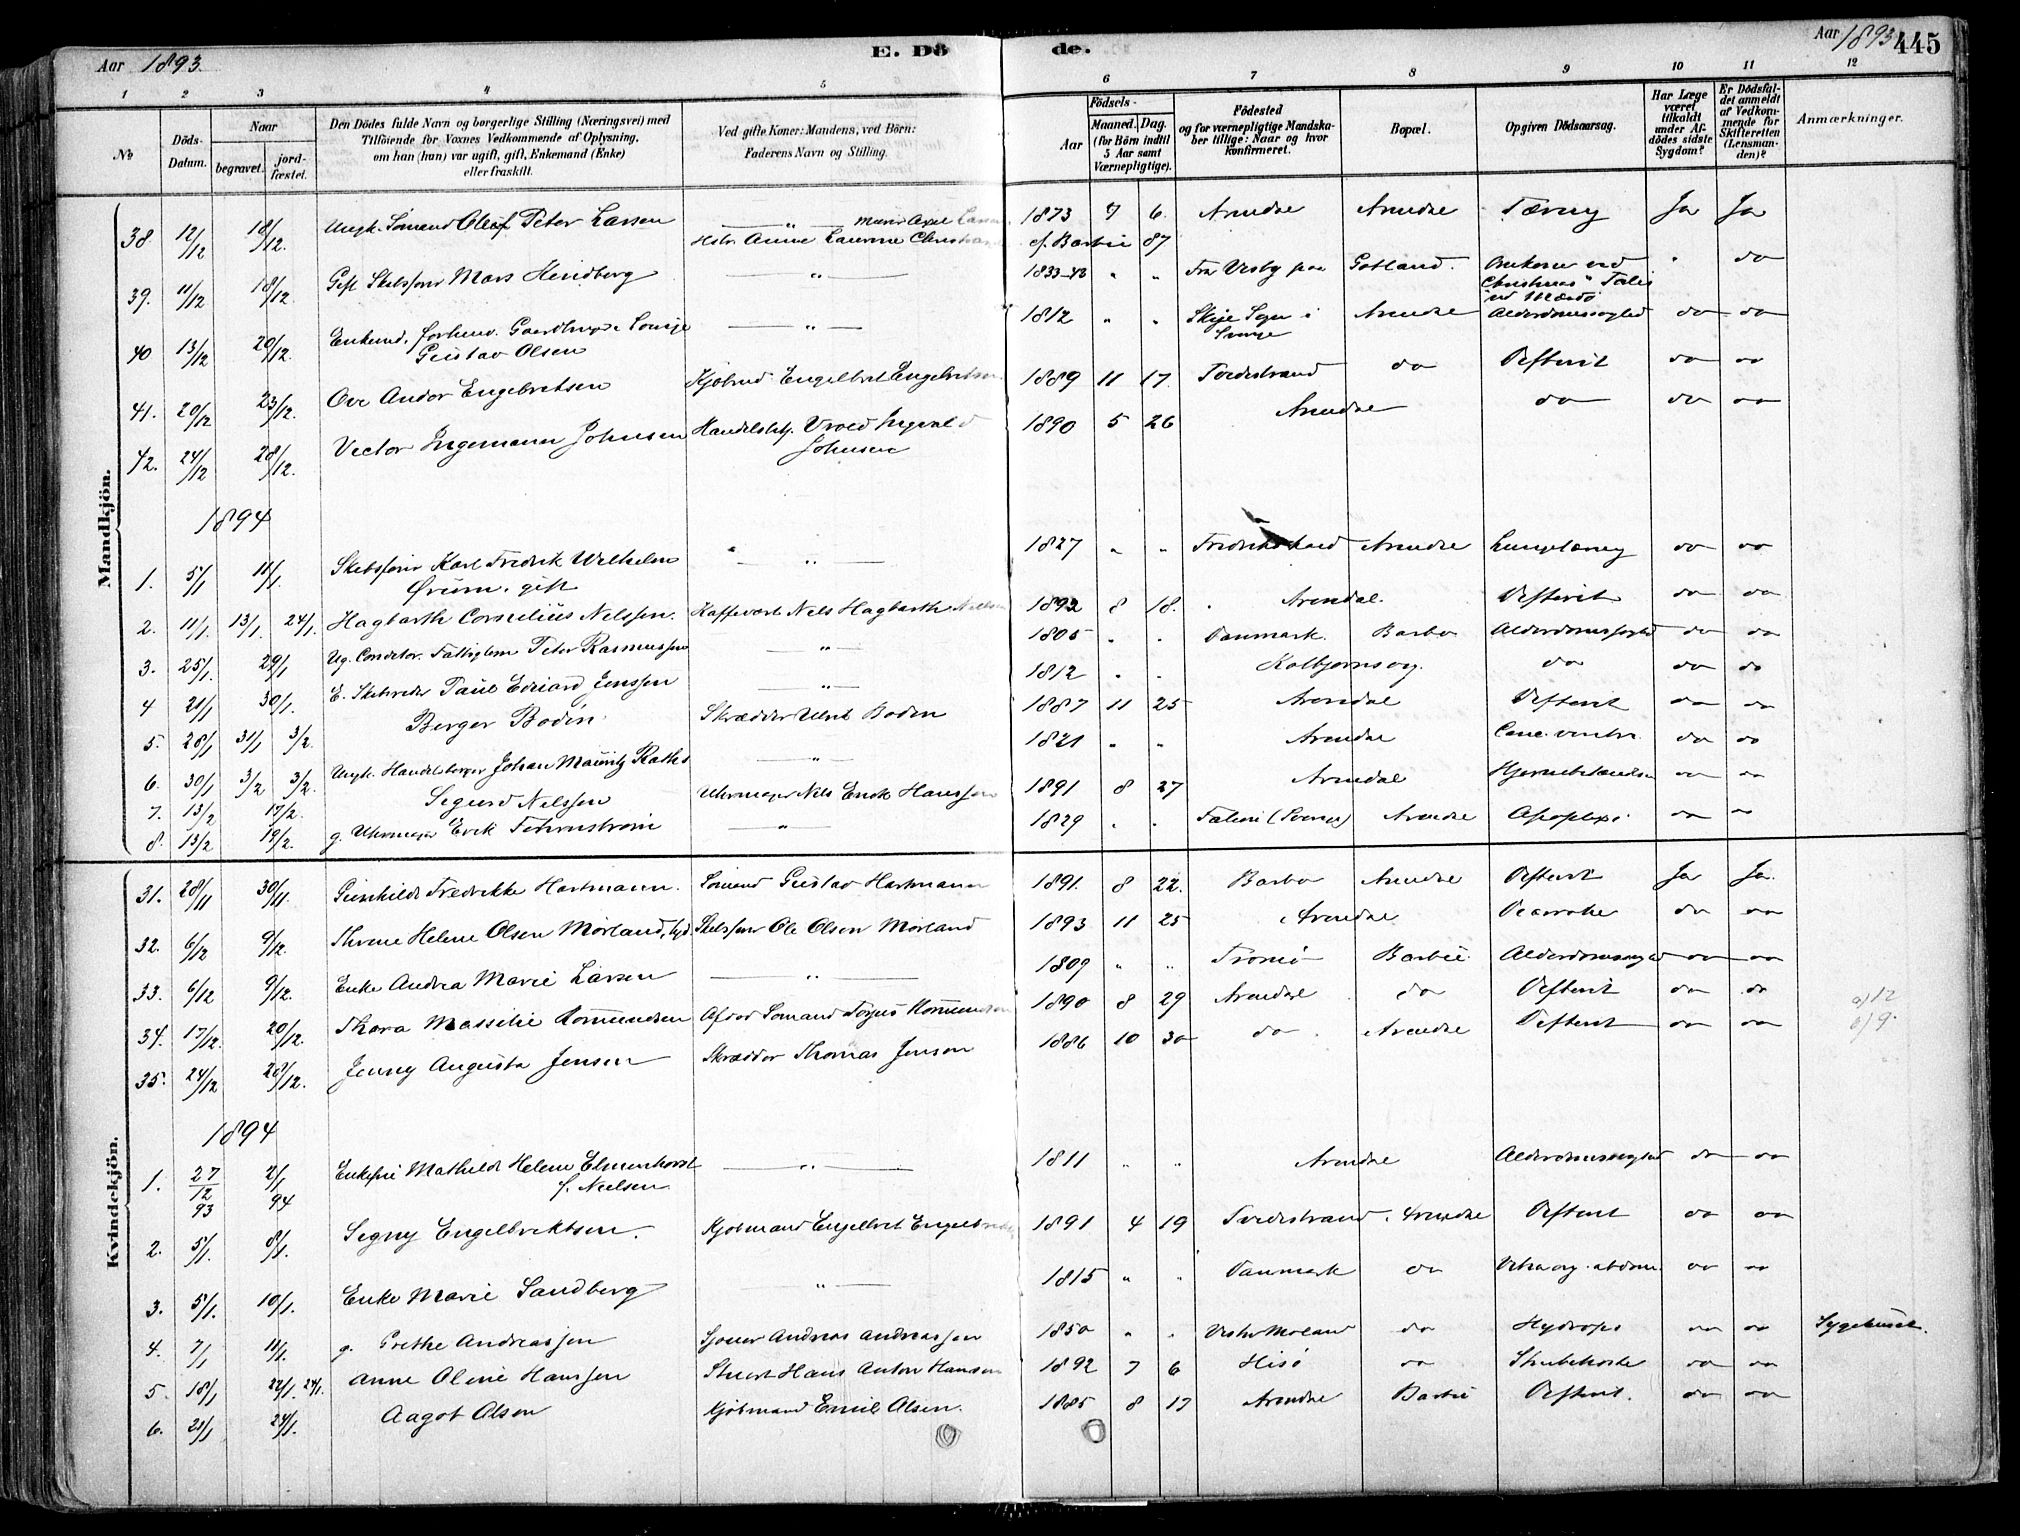 Aar 1893.
E. Döde.
Aar 1893
445
1 2 3 4 5 6 7 8 9 10 11 12
№
Döds-Datum.
Naar
begravet.
jord-fæstet.
Den Dödes fulde Navn og borgerlige Stilling (Næringsvei) med
Tilföiende for Voxnes Vedkommende af Oplysning,
om han (hun) var ugift, gift, Enkemand (Enke)
eller fraskilt.
Ved gifte Koner: Mandens, ved Börn:
Faderens Navn og Stilling.
Födsels-
Aar
Maaned. Dag.
(for Börn indtil
5 Aar samt
Værnepligtige).
Födested
og for værnepligtige Mandska-
ber tillige: Naar og hvor
konfirmeret.
Bopæl.
Opgiven Dödsaarsag.
Har Læge
været
tilkaldt
under Af-
dödes sidste
Sygdom?
Er Dödsfal-
det anmeldt
af Vedkom-
mende for
Skifteretten
(Lensman-
den)?
Anmærkninger.
Mandkjön.
38. 12/12 18/12. Ungk. Sömand Olaf Peter Larsen 1873 7 6. Arendal Arendal Tæring Ja Ja
87
39. 11/12 18/12. Gift Skibsförer Mars Hindberg — " — 1833 " " Fra Visby paa Gotland. " do
40 13/12 20/12. Enkemd. forhenv. — " — 1812 " " Skije Sogn i Arendal Alderdomssvaghed do do
Gustav Olsen Sverige
41. 20/12 23/12. Ove Andor Engebretsen Kjöbmd Engelbret Engebretsen 1889 11 17. Tvedestrand do Difterit do do
42. 24/12 28/12. Victor Ingemann Johnsen 1890 5 26 Arendal do do do
Johnsen
1894
1. 5/1 11/1. Skibsförer Karl Fredrik Wilhelm — " — 1827 " " Arendal do do
Örum. gift
2. 11/1. 13/1. 24/1. Hagbarth Cornelius Nilssen. Kaffevært Nils Hagbarth Nilssen 1892 8 18. Arendal. Difterit do do
3. 25/1. 29/1 Ug. Conditor. Fattiglem Peter Rasmussen — " — 1805 " " Danmark. Barbo Alderdomssvaghed do do
4 21/1 30/1. E. Skibsreder Paul Edvard Jenssen — " — 1812 " " Kolbjörnsvig. do do do
5. 28/1 31/1 3/2. Birger Bodin Skrædder Ulrik Bodin 1887 11 25 Arendal Difterit do do
6. 30/1 3/2 3/2. Ungk. Handelsborger Johan Mauritz Raths — " — 1821 " " Arendal do do
7. 13/2 17/2. Sigurd Nilssen Uhrmager Nils Erik Hanssen 1891 8 27 Arendal do do
8. 13/2 19/2. g. Uhrmager Erik — " — 1829 " " Arendal Apoplexi do do
Kvindekjön.
31. 28/11 30/11. Gunhilde Fredrikke Hartmann. Sömand Gustav Hartmann 1891. 8 22. Barbo Arendal Difterit Ja Ja.
32. 6/12 9/12. Thrine Helene Olsen Mörland, Skibsförer Ole Olsen Mörland 1893 11 25 Arendal Diarrohe do do
33. 6/12 9/12. Enke Andrea Marie Larsen — " — 1809 " " Tromö Barbu Alderdomssvaghed do do
34. 17/12. 20/12. Thora Massilie Romundsen 1890 8 29 Arendal do Difterit do do
35. 24/12 28/12. Jenny Augusta Jensen Skrædder Thomas Jensen 1886 10 30 do. Arendal Difterit do do
1894
1. 27/12 93 2/1 94 Enkefru Mathilde Helene Elmenhorst — " — 1811 " " Arendal Alderdomssvaghed do do
f. Nielsen
2. 5/1. 8/1. Signy Engelbrektsen. Kjöbmand Engelbret 1891 4 19 Tvedestrand Arendal Difterit do do
3. 5/1. 10/1. Enke Marie Sandberg — " — 1815 " " Danmark do do do
4. 7/1 11/1. g. Grethe Andreassen Andreas Andreassen 1850 " " Vestre Moland do Hydrops do do Sygehuset.
5. 18/1 22/1. 24/1. Anne Oline Hanssen Stuert Hans Anton Hanssen 1892 7 6 Hisö do Strubehoste do do
6. 21/1 24/1. Aagot Olsen Kjöbmand Emil Olsen. 1885 8 17 Arendal Barbu Difterit. do do